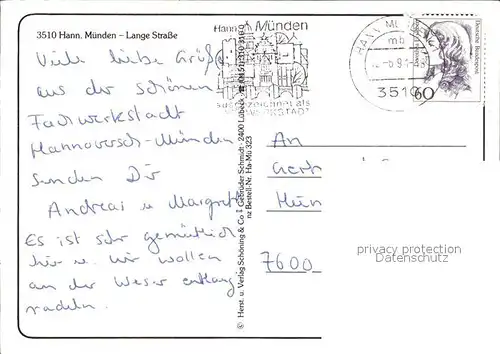 3510 Hann. Münden – Lange Straße
Viele liebe Grüße
aus der schönen
Fachwerkstadt
Hannoversch-Münden
senden Dir
Andreas u. Margret
Es ist sehr gemütlich
hier u. wir wollen
an der Weser entlang
radeln.
Herst. u. Verlag Schöning & Co + Gebrüder Schmidt · 2400 Lübeck
Bestell-Nr. Ha-Mü 323
Hann. Münden
ausgezeichnet als
HANN. MÜ
mb
3510
Deutsche Bundespost
60
An
7600
privacy protection
Datenschutz